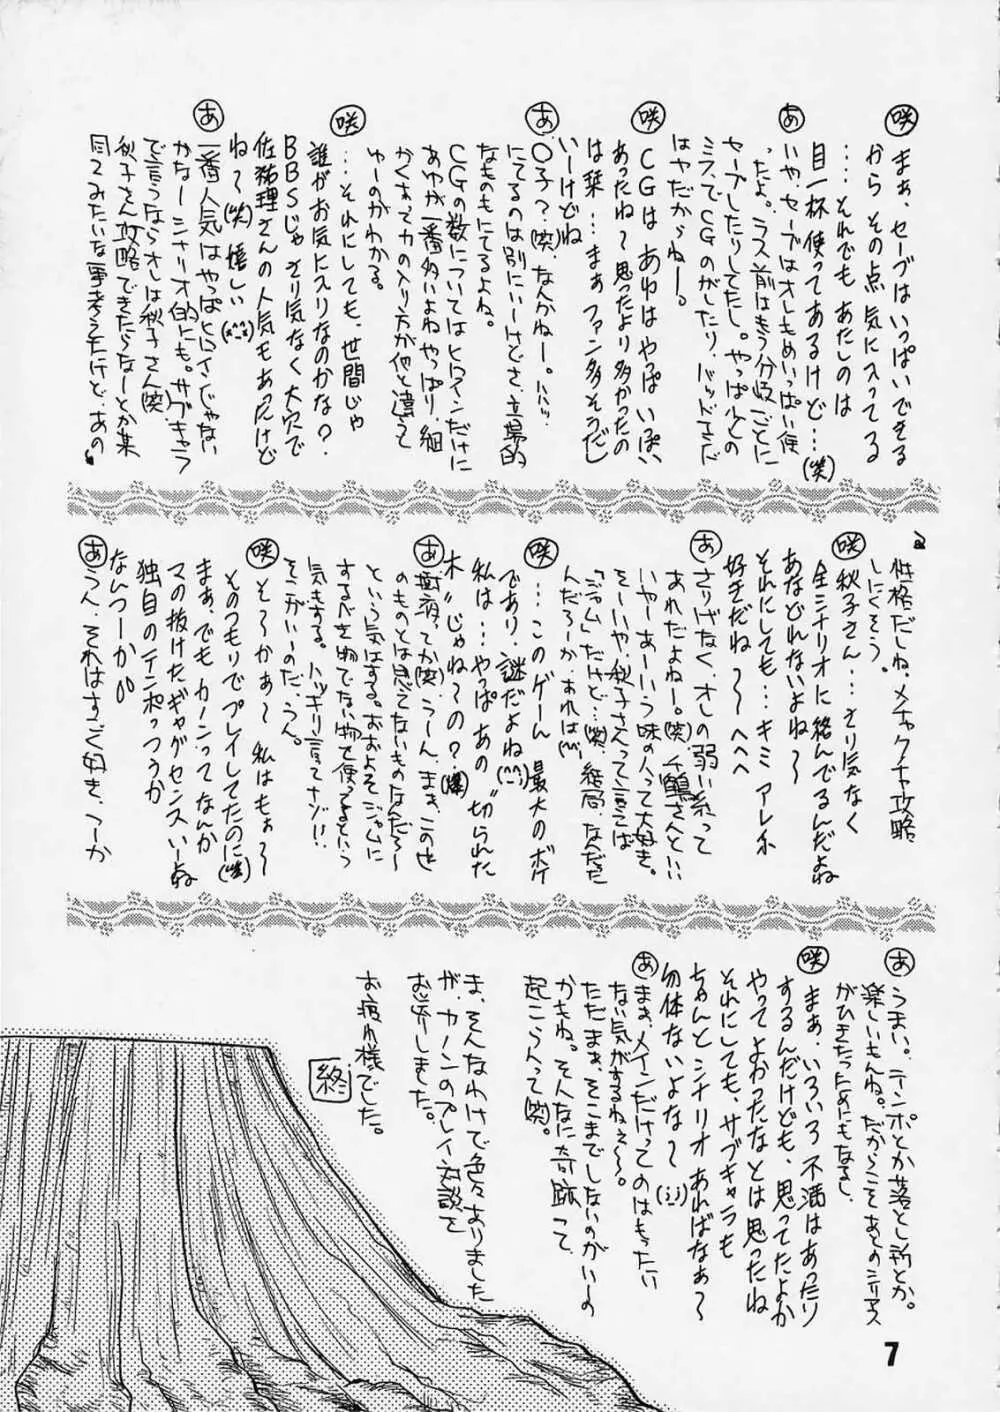 咲 まぁ、セーブはいっぱいできる
からその点気に入ってる
…それでもあたしのは
目一杯使ってあるけど…(笑)
あ いやセーブはオレもめいっぱい使
ったよ。ラス前はもう分岐ごとに
セーブしたりしてたし。やっぱ少しの
ミスでCGのがしたり、バッドエンド
はやだからねー。
咲 CGはあゆはやっぱいっぱい
あったね〜思ったより多かったの
は栞…まぁファン多そうだし
いーけどね
あ ○子?(笑)、なんかねー。ハハッ
にてるのは別にいーけどさ、立場的
なものもにてるよね。
CGの数についてはヒロインだけに
あゆが一番多いよねやっぱり、細
かくまで力の入り方が他と違うて
ゆーのがわかる。
咲 …それにしても、世間じゃ
誰がお気に入りなのかな?
BBSじゃさり気なく大穴で
佐祐理さんの人気もあったけど
ね〜(笑)嬉しい(^^)
あ 一番人気はやっぱヒロインじゃない
かなーシナリオ的にも。サブキャラ
で言うならオレは秋子さん(笑)
秋子さん攻略できたらなーとか某
同てみたいな事考えたけど、あの
性格だしね、メチャクチャ攻略
しにくそう。
咲 秋子さん…さり気なく
全シナリオに絡んでるんだよね
あなどれないよね〜
それにしても…キミアレ系
好きだね〜〜へへへ
あ さりげなくオレの弱い系って
あれだよねー。(笑)、千鶴さんといい
いやーあーいう味の人って大好き。
そーいや、秋子さんって言えば
「ジャム」だけど…(笑)、結局、なんだた
んだろーか、あれは(^^;
咲 …このゲーム 最大のボケ
であり、謎だよね(^^;)
私は…やっぱあの"切られた
木"じゃね〜の?(爆)
あ 樹液ってか(笑)、うーん、まぁ、この世
のものとは思えてないものなんだろー
という気はする。おおよそジャムに
するべき物でない物を使ってるという
気もする。ハッキリ言ってナゾ!!
そこがいーのだ、うん。
咲 そ〜かぁ〜 私はもぉ〜
そのつもりでプレイしてたのに(笑)
まぁ、でもカノンってなんか
マの抜けたギャグセンスいーよね
独自のテンポっつうか
なんつーか
あ うん、それはすごく好き、つーか
あ うまい。テンポとか落とし所とか。
楽しいもんね。だからこそあとのシリアス
がひきたったりにもなるし
咲 まぁ、いろいろ不満はあったり
するんだけども、思ってたよか
やってよかったなとは思ったね
それにしても、サブキャラも
ちゃんとシナリオあればなぁ〜
勿体ないよな〜(;;)
あ まぁ、メインだけってのはもったい
ない気がするねぇ〜。
ただまぁ、そこまでしないのがいーの
かもね。そんなに奇跡って
起こらんって(笑)。
ま、そんなわけで色々ありました
が、カノンのプレイ対談を
お送りしました。
お疲れ様でした。
終
7